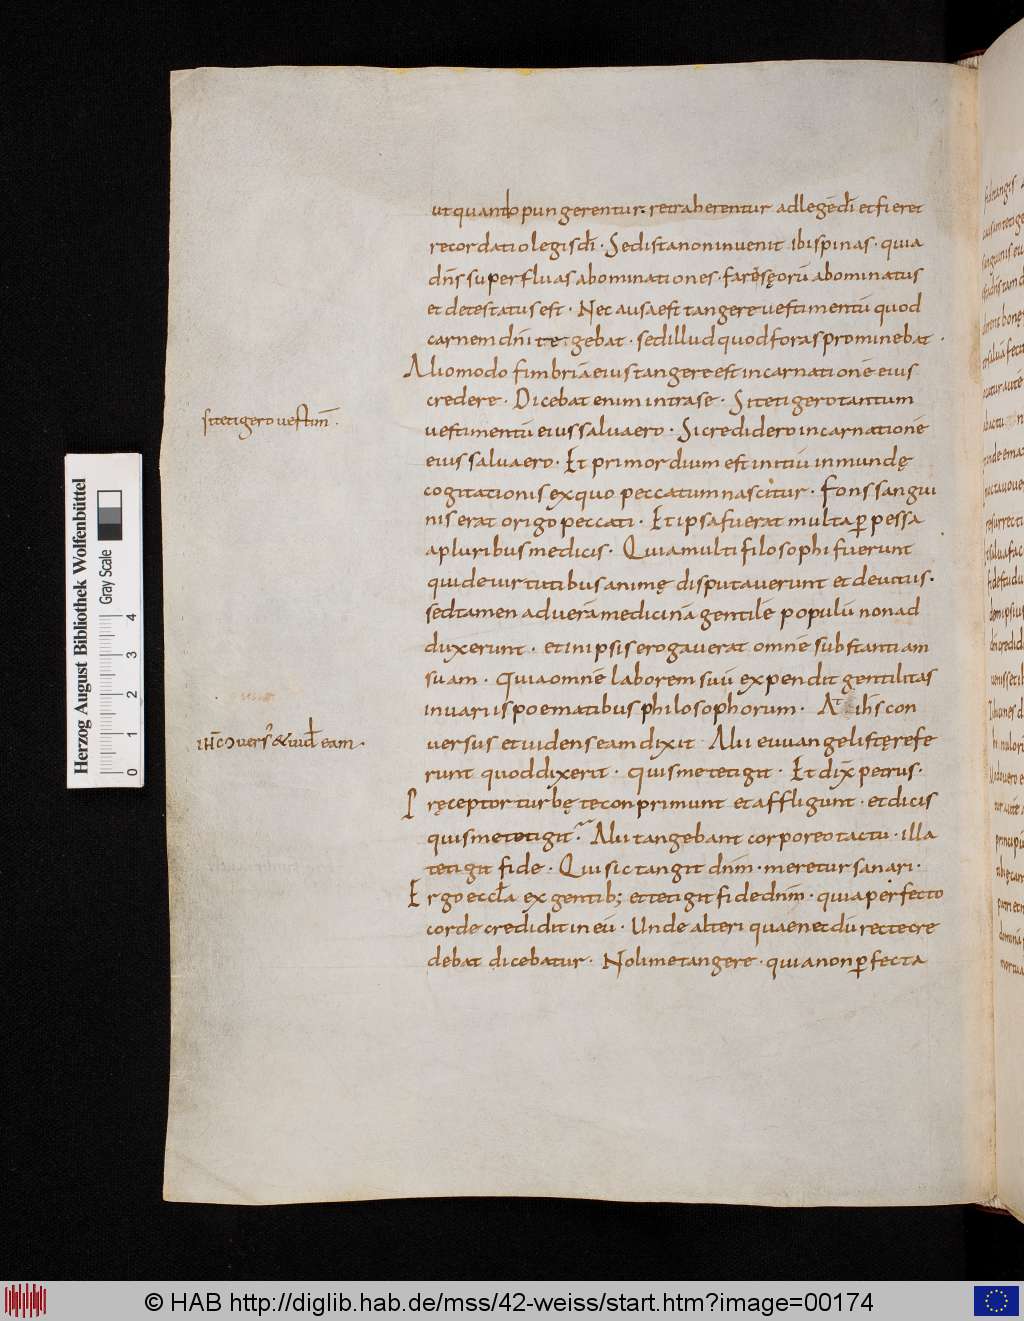 ut quando pungerentur. retraherentur ad legē dī et fieret
recordatio legis dī. Sed ista non invenit ibi spinas. quia
dn̄s superfluas abominationes. fariseorū abominatus
et detestatus est. Nec ausa est tangere vestimentū quod
carnem dn̄i tegebat. sed illud quod foras prominebat.
Alio modo fimbriā eius tangere est incarnationē eius
credere. Dicebat enim intra se. Si tetigero tantum
si tetigero vestim̄.
vestimentū eius salva ero. Si credidero incarnationē
eius salva ero. Et primordium est initiū inmundę
cogitationis ex quo peccatum nascitur. Fons sangui
nis erat origo peccati. Et ipsa fuerat multa ꝑpessa
a pluribus medicis. Quia multi filosophi fuerunt
qui de virtutibus animę disputaverunt et de vitiis.
sed tamen ad verā medicinā gentilē populū non ad
duxerunt. et in ipsis erogaverat omnē substantiam
suam. Quia omnē laborem suū expendit gentilitas
in variis poematibus philosophorum. At ih̄s con
ih̄c ↄvers᾽ & vid̄ eam.
versus et videns eam dixit Alii euuangelistę refe
runt quod dixerit. quis me tetigit. Et dix̄ petrus.
Pręceptor turbę te conprimunt et affligunt. et dicis
quis me tetigit. Alii tangebant corporeo tactu. illa
tetigit fide. Qui sic tangit dn̄m. meretur sanari.
Ergo eccl̄a ex gentib; et tetigit fide dn̄m. quia perfecto
corde credidit in eū. Unde alteri quae necdū recte cre
debat dicebatur. Noli me tangere. quia non ꝑfecta
Herzog August Bibliothek Wolfenbüttel
Gray Scale
0 1 2 3 4
© HAB http://diglib.hab.de/mss/42-weiss/start.htm?image=00174